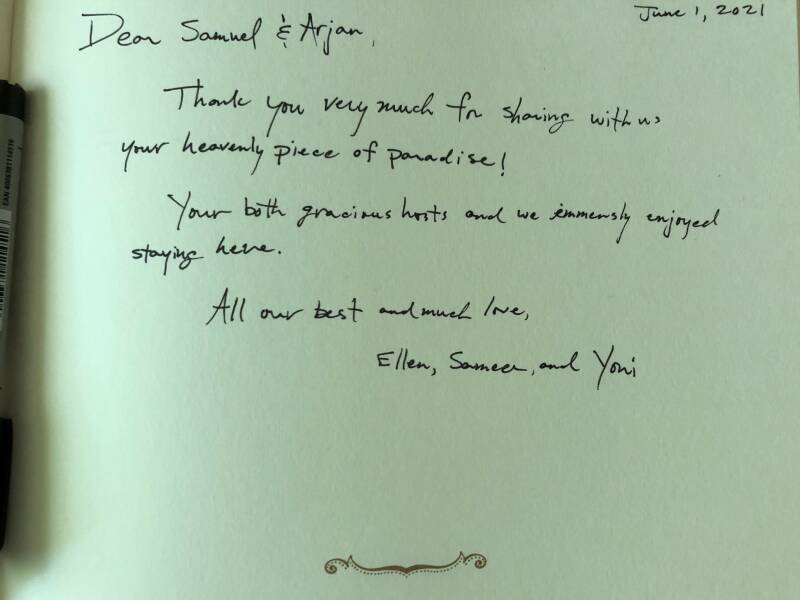 June 1, 2021
Dear Samuel & Arjan,
Thank you very much for sharing with us
your heavenly piece of paradise!
Your both gracious hosts and we immensly enjoyed
staying here.
All our best and much love,
Ellen, Sameer, and Yoni
EAN 4006381114318